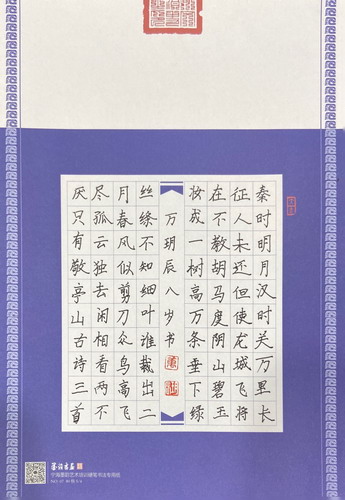 秦时明月汉时关万里长
征人未还但使龙城飞将
在不教胡马度阴山碧玉
妆成一树高万条垂下绿
万玥辰八岁书
丝绦不知细叶谁裁出二
月春风似剪刀众鸟高飞
尽孤云独去闲相看两不
厌只有敬亭山古诗三首